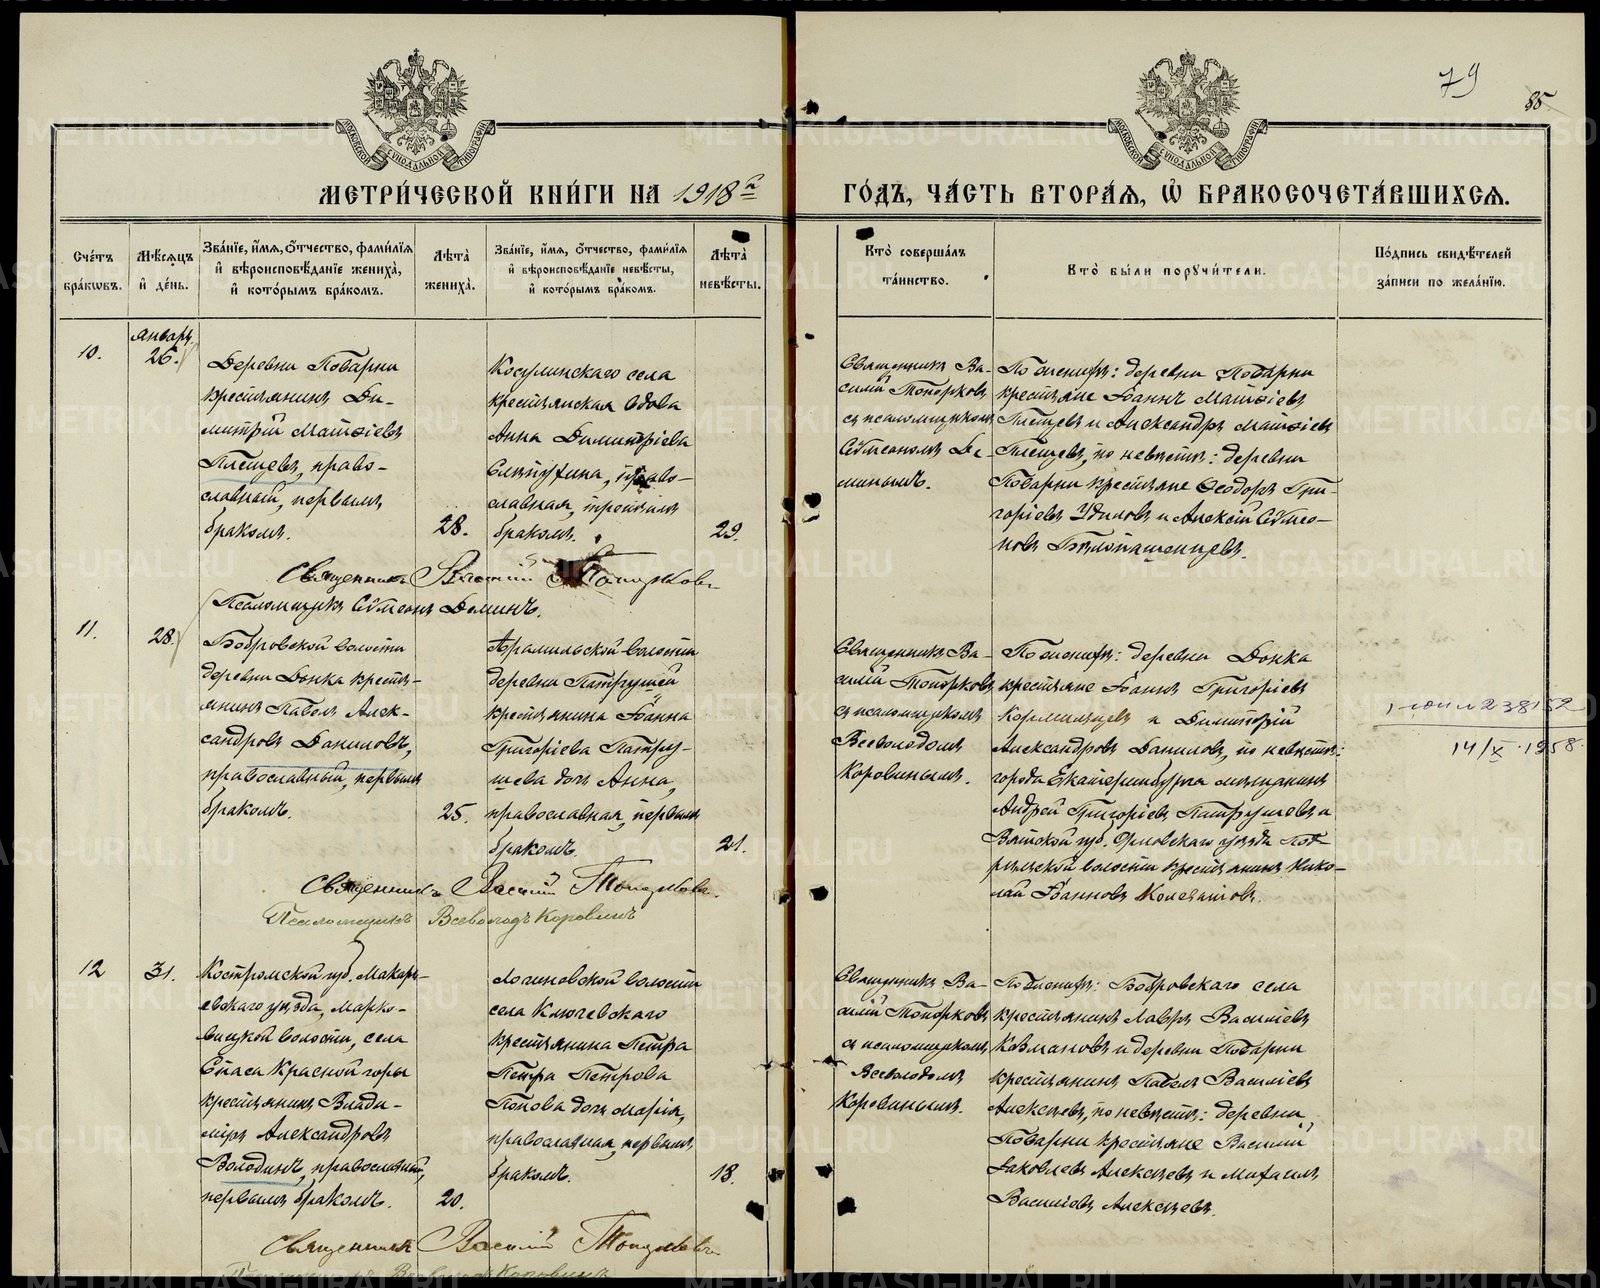 79
85
МЕТРИ́ЧЕСКОЙ КНИ́ГИ НА 1918й
ГО́ДЪ, ЧА́СТЬ ВТОРА́Я, Ѡ҆ БРАКОСОЧЕТА́ВШИХСЯ.
Сче́тъ
бра́ковъ.
Мѣ́сяцъ
и҆ де́нь.
Зва́нїе, и҆́мя, ѻ҆́тчество, фами́лїя
и҆ вѣроисповѣ́данїе жениха̀,
и҆ кото́рымъ бра́комъ.
Лѣ́та
жениха̀.
Зва́нїе, и҆́мя, ѻ҆́тчество, фами́лїя
и҆ вѣроисповѣ́данїе невѣ́сты,
и҆ кото́рымъ бра́комъ.
Лѣ́та
невѣ́сты.
Кто̀ соверша́лъ
та́инство.
Кто̀ бы́ли поручи́тели.
По́дпись свидѣ́телей
за́писи по жела́нїю.
10.
Январь
26.
Деревни Поварни
крестьянинъ Ди-
митрій Матѳіевъ
Плетцевъ, право-
славный, первымъ
бракомъ.
28.
Косулинскаго села
крестьянская вдова
Анна Димитріева
православная, третьимъ
бракомъ.
29.
Священникъ Ва-
силій Топорковъ
съ псаломщикомъ
Сѵмеономъ Де-
минымъ.
По женихѣ: деревни Поварни
крестьяне Іоаннъ Матѳіевъ
Плетцевъ и Александръ Матѳіевъ
Плетцевъ, по невѣстѣ: деревни
Поварни крестьяне Ѳеодоръ Гри-
горіевъ Удиловъ и Алексій Сѵмео-
новъ Бѣлопашенцевъ.
Священникъ Василій Топорковъ
Псаломщикъ Сѵмеонъ Деминъ.
11.
28.
Бобровской волости
деревни Боярка кресть-
янинъ Павелъ Алек-
сандровъ Даниловъ,
православный, первымъ
бракомъ.
25.
Арамильской волости
деревни Патрушей
крестьянина Іоанна
Григоріева Патру-
шева дочь Анна,
православная, первымъ
бракомъ.
21.
Священникъ Ва-
силій Топорковъ
съ псаломщикомъ
Всеволодомъ
Коровинымъ.
По женихѣ: деревни
крестьяне Іоаннъ Григоріевъ
Кормильцевъ и Димитрій
Александровъ Даниловъ, по невѣстѣ:
города Екатеринбурга мѣщанинъ
Андрей Григоріевъ Патрушевъ и
Вятской губ. Орловскаго уѣзда
волости крестьянинъ Нико-
лай Іоанновъ
238152
14/X 1958.
Священникъ Василій Топорковъ.
Псаломщикъ Всеволодъ Коровинъ
12
31.
Костромской губ. Макарь-
евскаго уѣзда, Марко-
волости, села
Спаса Красной горы
крестьянинъ Влади-
міръ Александровъ
Володинъ, православный,
первымъ бракомъ.
20.
Логиновской волости
села Ключевскаго
крестьянина Петра
Петра Петрова
Попова дочь Марія,
православная, первымъ
бракомъ.
18.
Священникъ Ва-
силій Топорковъ
съ псаломщикомъ
Всеволодомъ
Коровинымъ.
По женихѣ: Бобровскаго села
крестьянинъ Лавръ Василіевъ
и деревни Поварни
крестьянинъ Павелъ Василіевъ
Алексѣевъ, по невѣстѣ: деревни
Поварни крестьяне Василій
Іаковлевъ Алексѣевъ и Михаилъ
Василіевъ Алексѣевъ.
Священникъ Василій Топорковъ
Псаломщикъ Всеволодъ Коровинъ